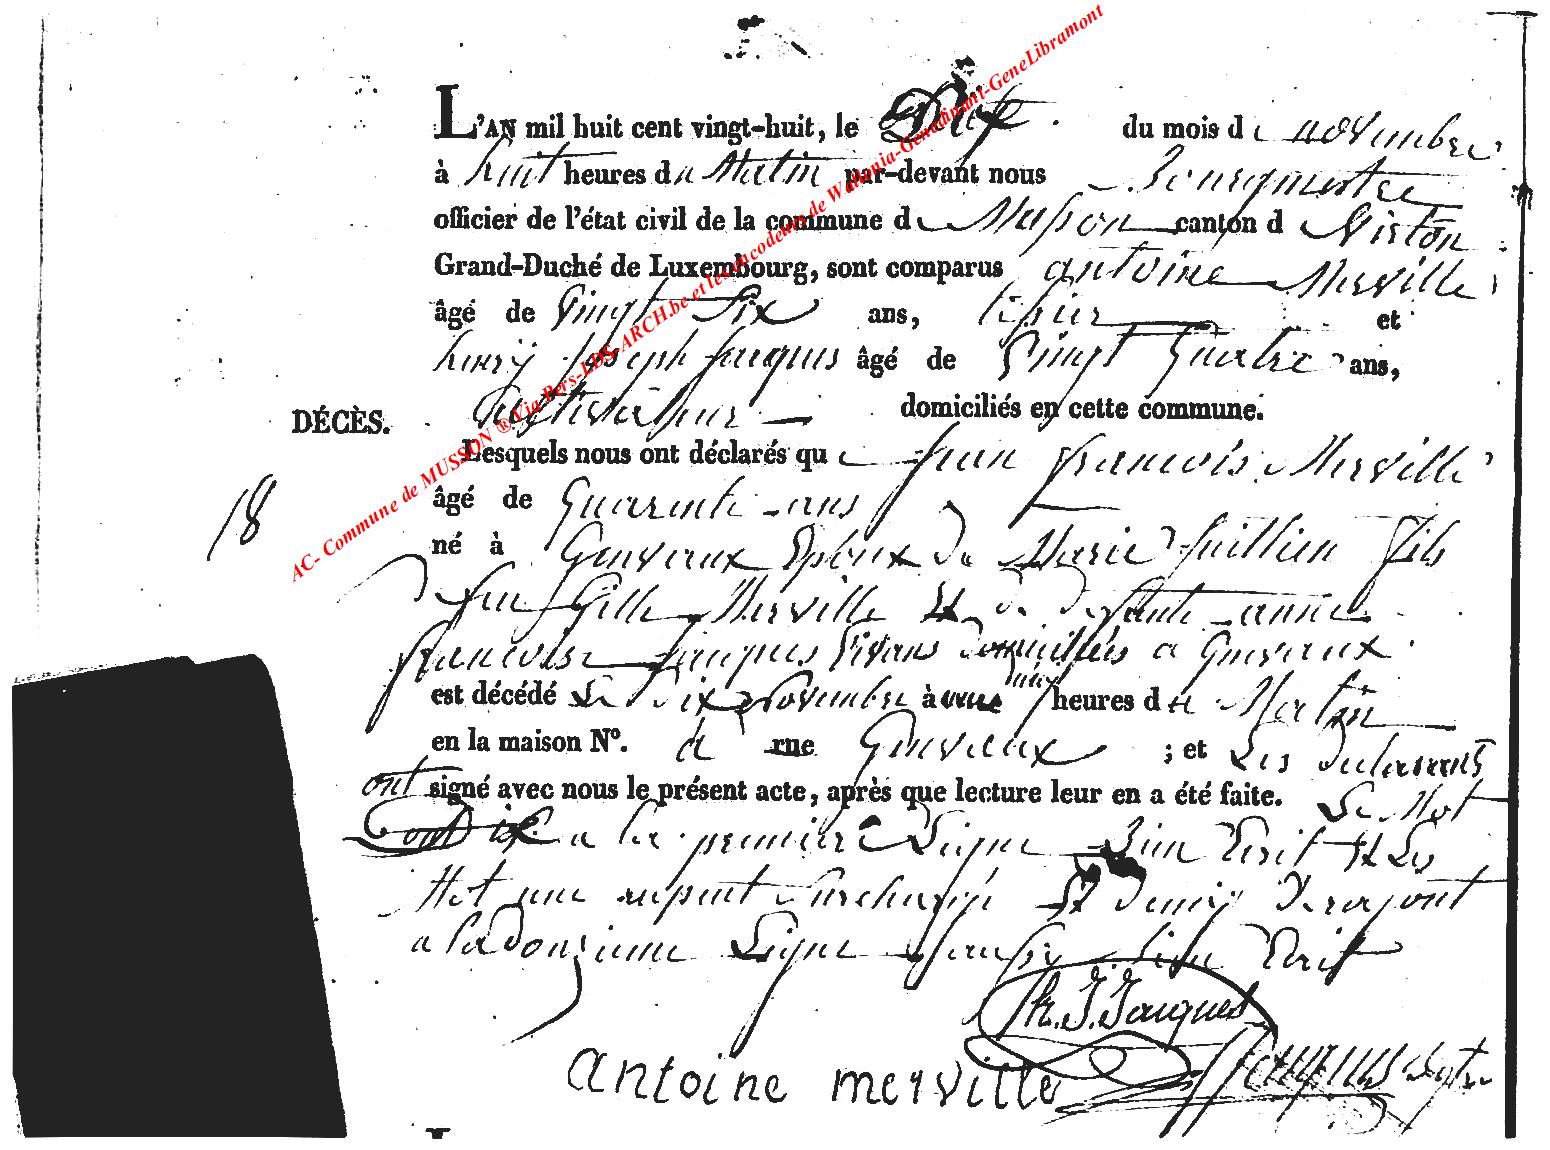 L'AN mil huit cent vingt-huit, le Dix du mois de novembre
à huit heures du Matin par-devant nous Bourgmestre
officier de l'état civil de la commune de Musson canton de Virton
Grand-Duché de Luxembourg, sont comparus antoine Merville
âgé de Vingt Six ans, et
henry joseph jacques âgé de Vingt quatre ans,
domiciliés en cette commune.
DÉCÈS.
Lesquels nous ont déclarés que jean françois Merville
18
âgé de quarente ans
né à Ginvaux Epoux de Marie fils
de feu Gille Merville Et de defunte anne
françoise jacques Vivans domicilliés a Ginvaux
est décédé Le Dix novembre à une heures du Matin
en la maison N°. a rue Ginvaux ; et Les declarants
ont signé avec nous le présent acte, après que lecture leur en a été faite. Le Mot
dix a la premiere Ligne Bien Ecrit Et Les
Mot une surchargé Et
a la Ligne aussy bien Ecrit
h. J. Jacques
antoine merville
Jacques
AC- Commune de MUSSON ® Via Pers-LDS-ARCH.be et les encodeurs de Wallonia-Genedinant-GeneLibramont